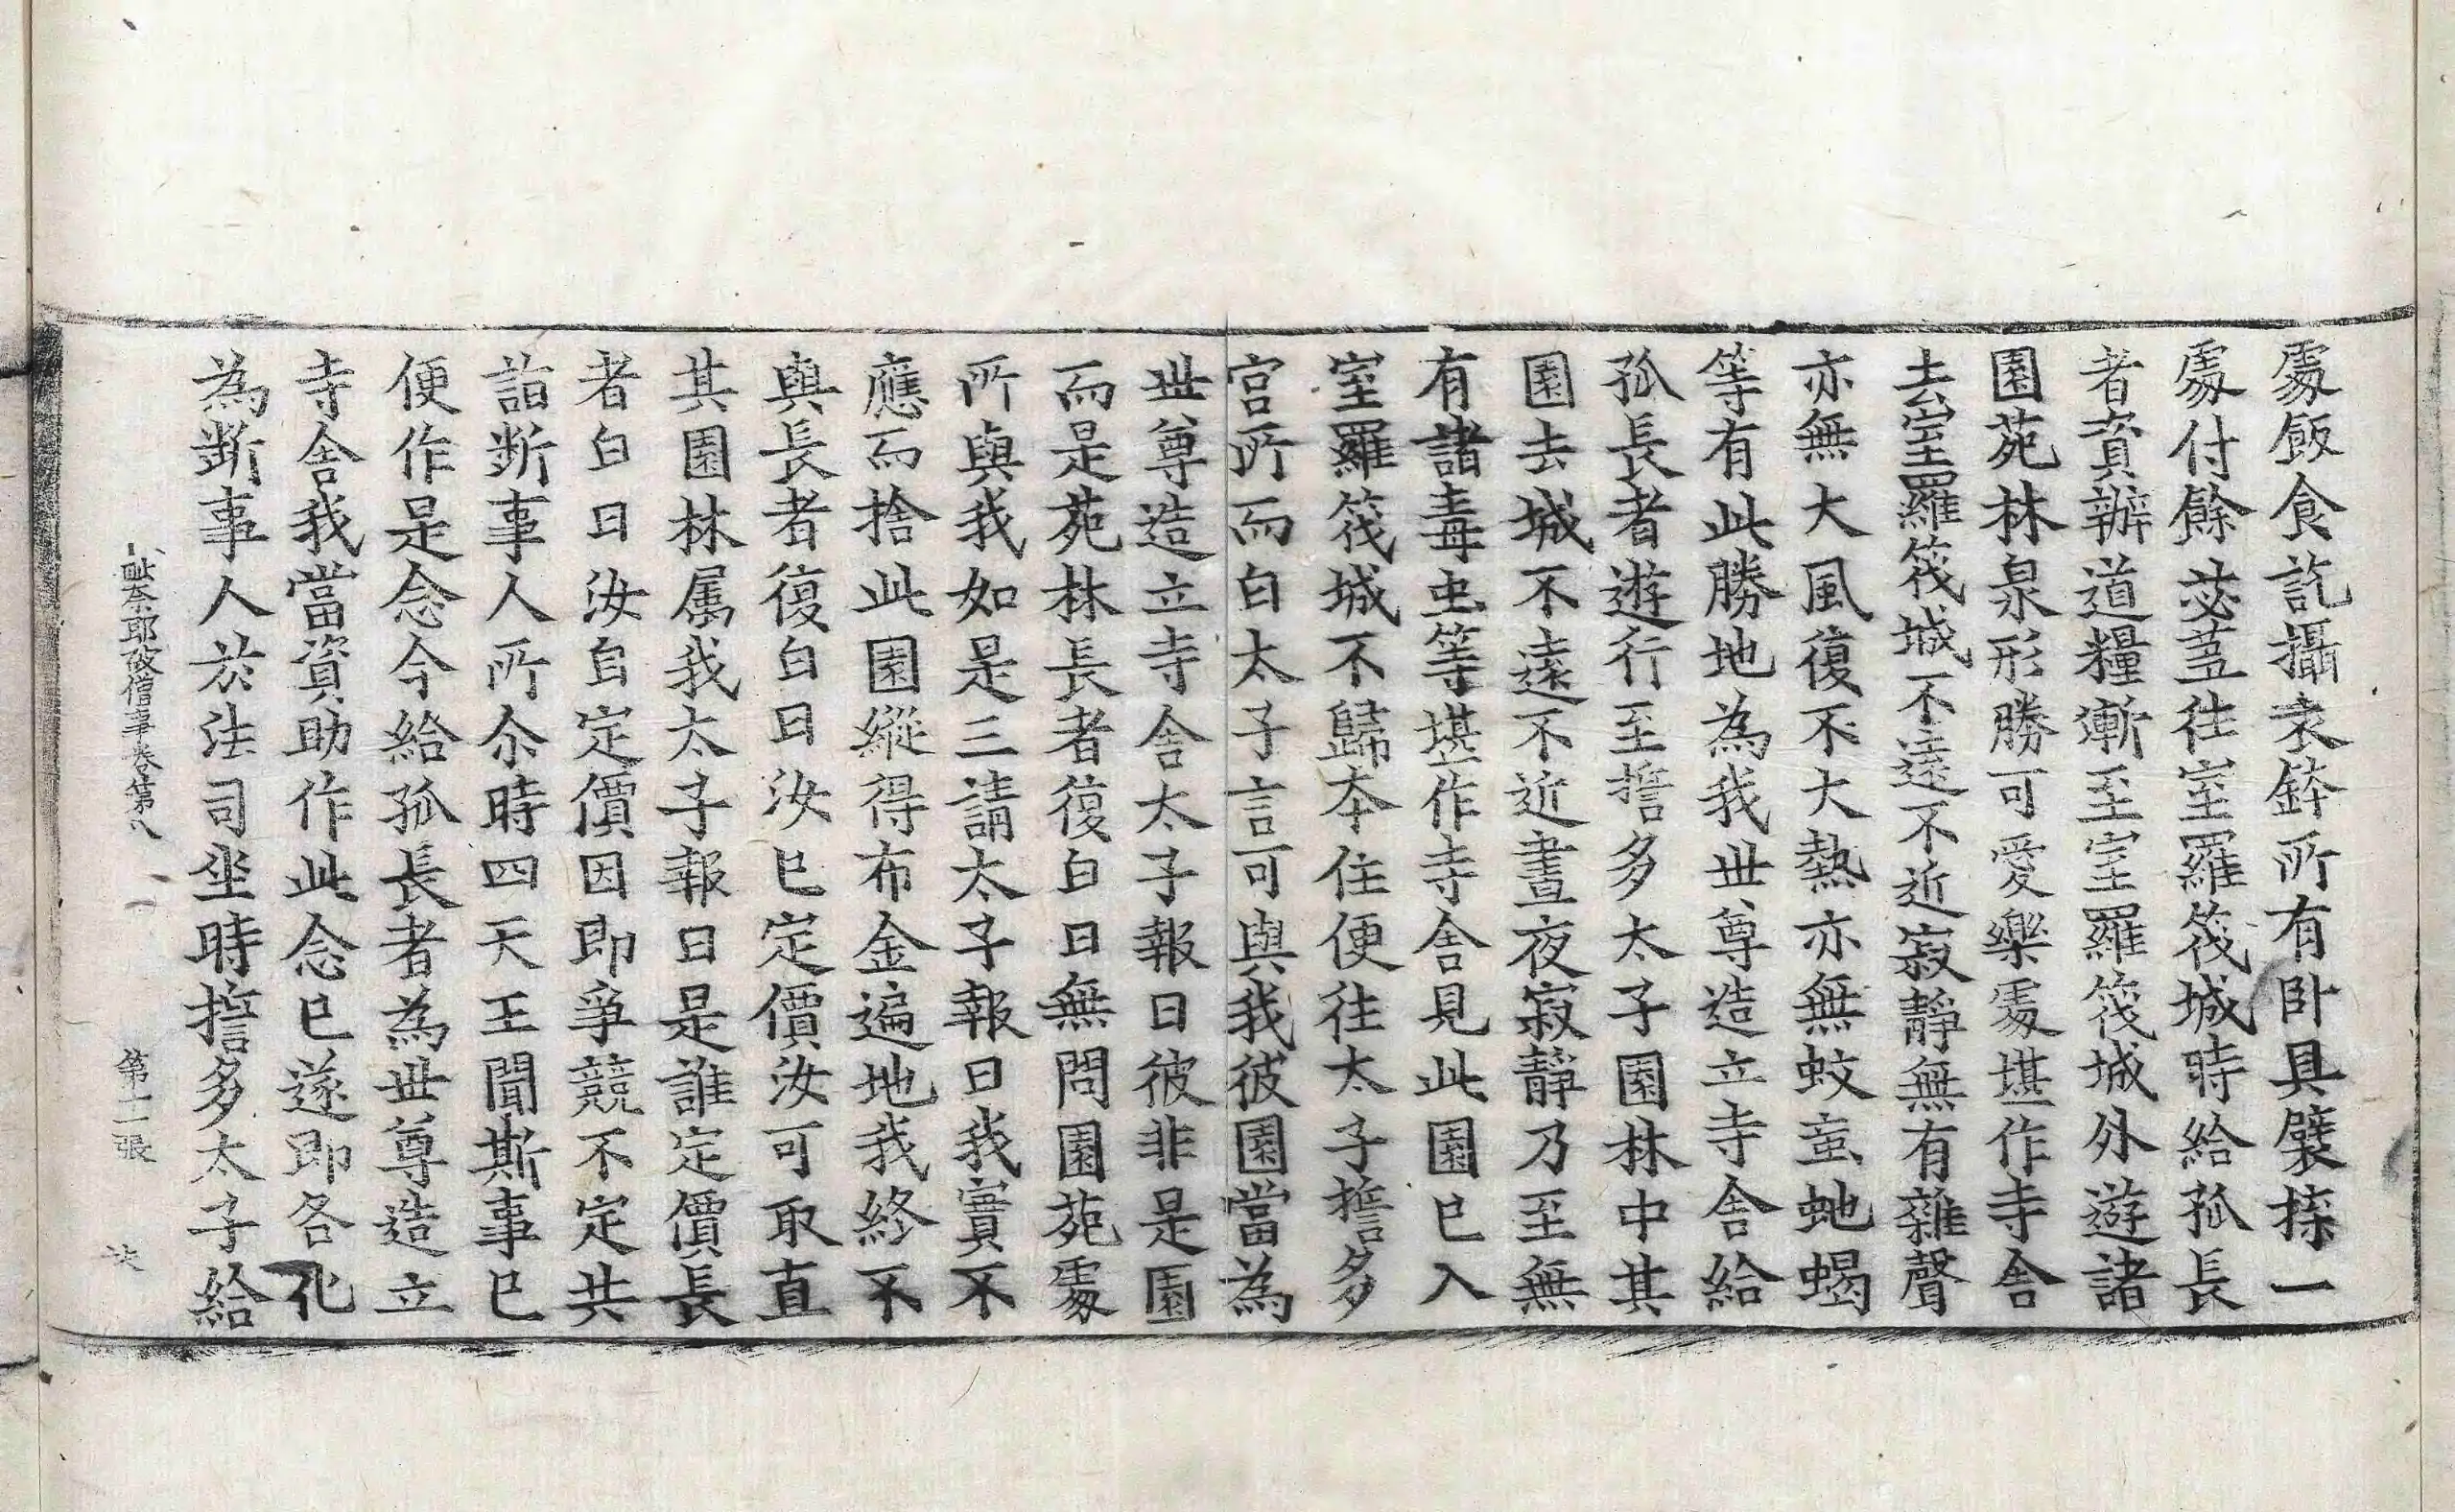 處飯食訖攝衣鉢所有卧具襞揲一
處付餘苾蒭往室羅筏城時給孤長
者資辦道糧漸至室羅筏城外遊諸
園苑林泉形勝可愛樂處堪作寺舍
去室羅筏城不遠不近寂靜無有雜聲
亦無大風復不大熱亦無蚊䖟虵蝎
等有此勝地為我世尊造立寺舍給
孤長者遊行至誓多太子園林中其
園去城不遠不近晝夜寂靜乃至無
有諸毒虫等堪作寺舍見此園已入
室羅筏城不歸本住便往太子誓多
宮所而白太子言可與我彼園當為
世尊造立寺舍太子報曰彼非是園
而是苑林長者復白曰無問園苑處
所與我如是三請太子報曰我實不
應而捨此園縱得布金遍地我終不
與長者復白曰汝已定價汝可取直
其園林属我太子報曰是誰定價長
者白曰汝自定價因即爭競不定共
詣斷事人所尒時四天王聞斯事已
便作是念今給孤長者為世尊造立
寺舍我當資助作此念已遂即各化
為斷事人於法司坐時誓多太子給
毗奈耶破僧事卷第八 第十二張